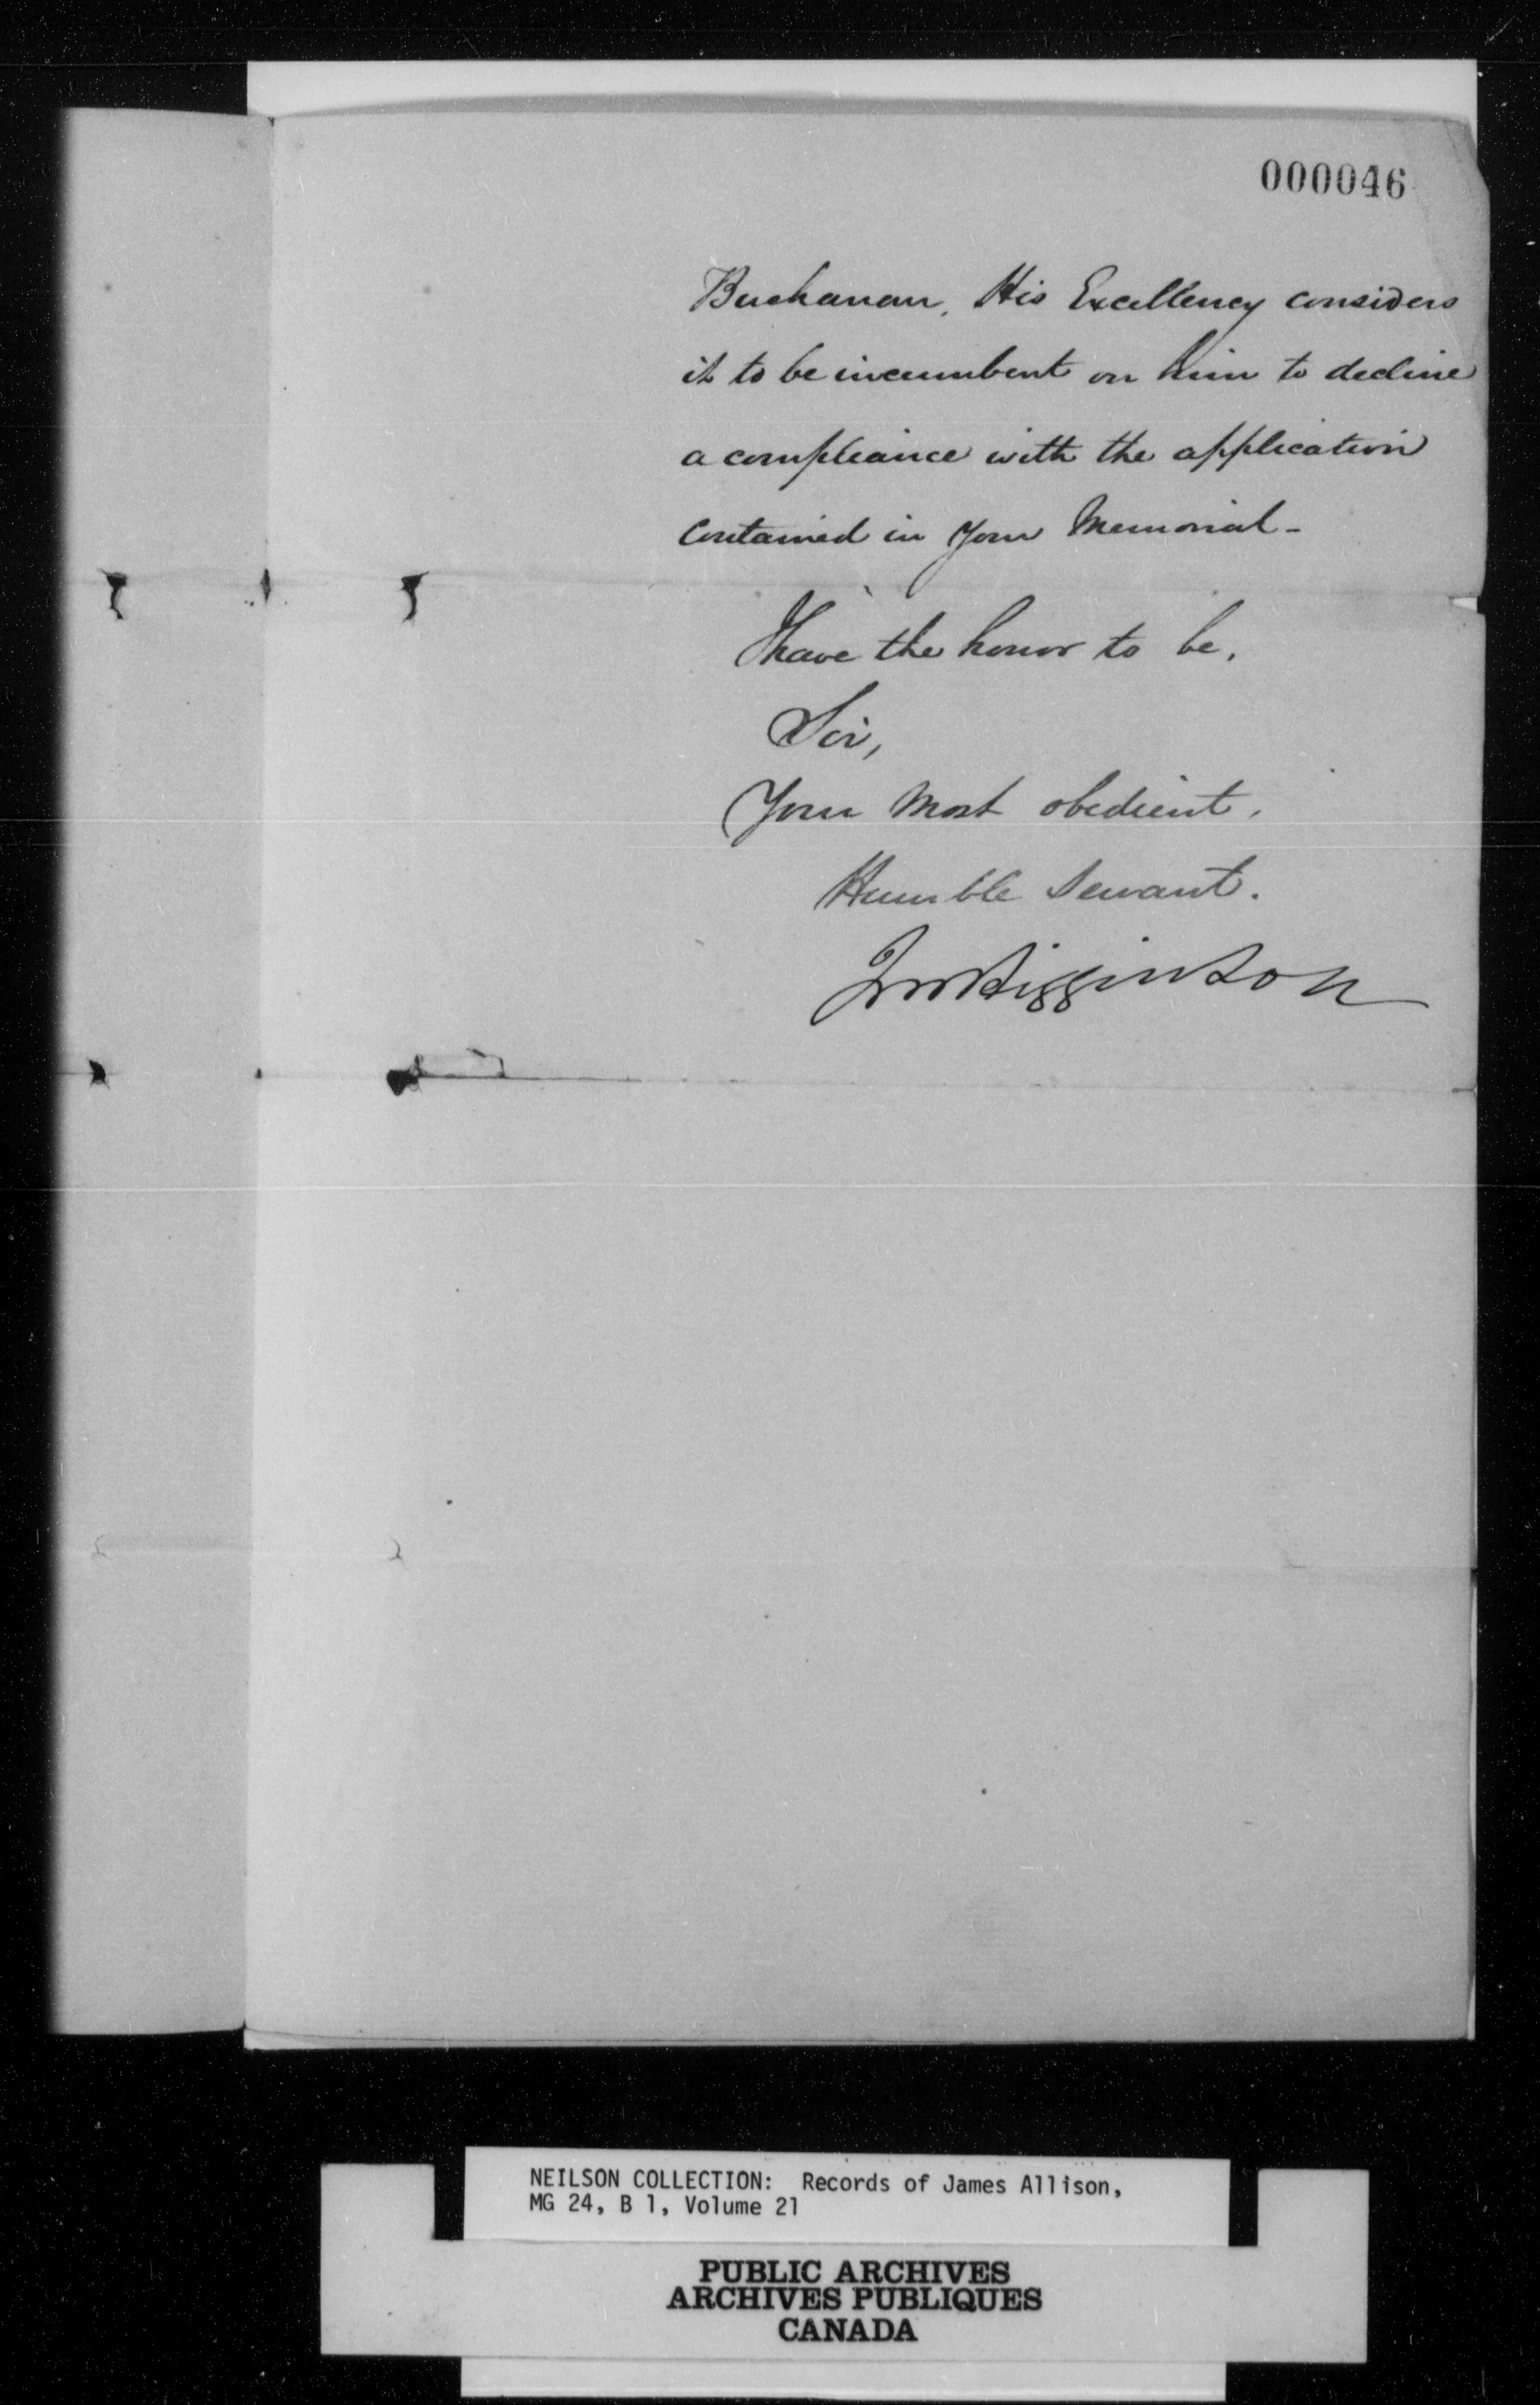 000046
Buchanan, His Excellency considers
it to be incumbent on him to decline
a compliance with the application
contained in your Memorial -
I have the honor to be,
Sir,
Your most obedient.
Humble Servant.
JM Higginson
NEILSON COLLECTION: Records of James Allison,
MG 24, B 1, Volume 21
PUBLIC ARCHIVES
ARCHIVES PUBLIQUES
CANADA